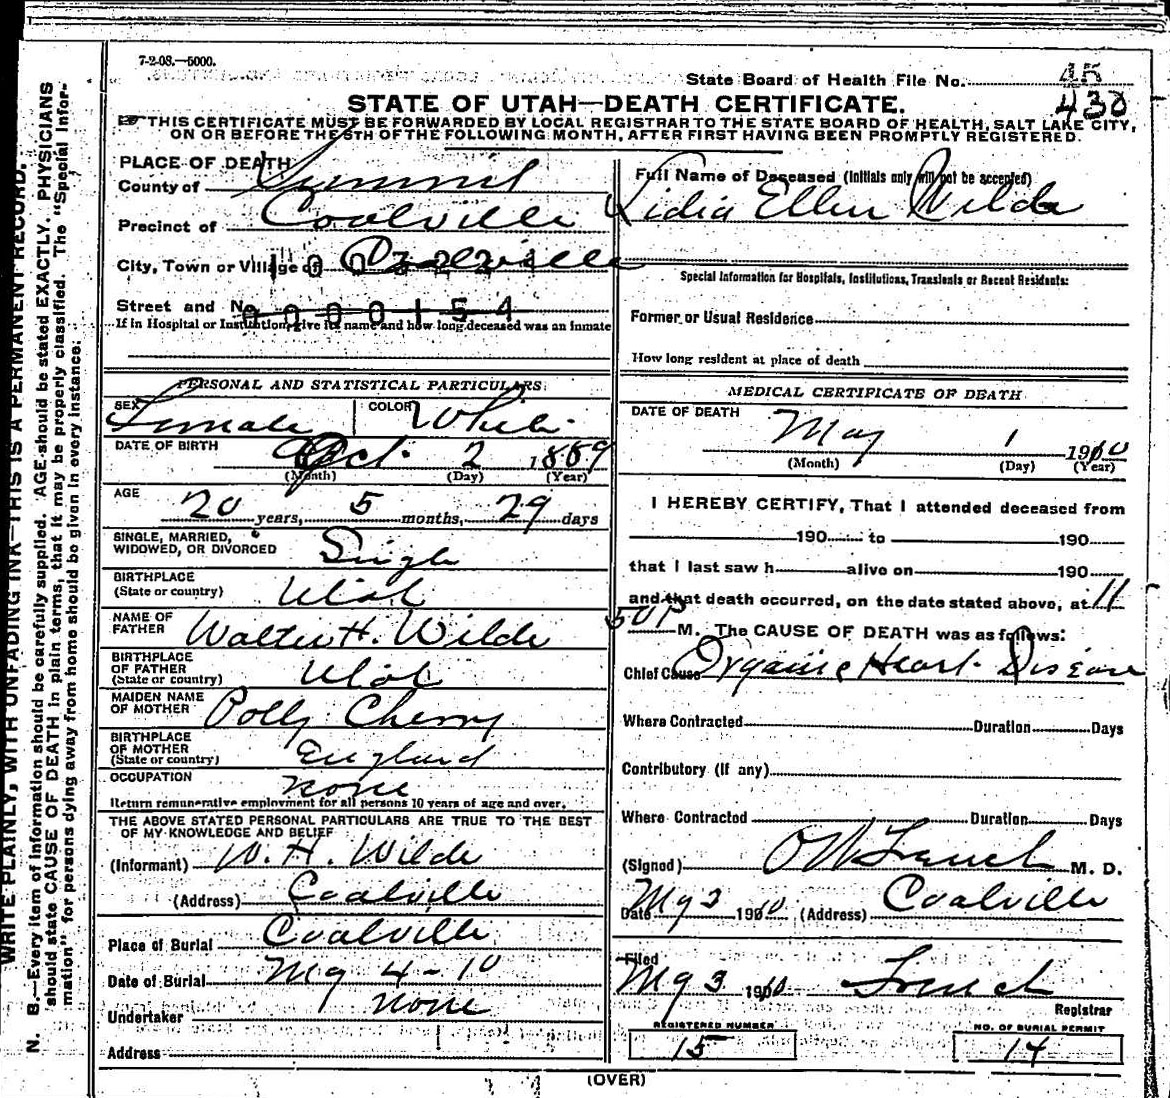 7-2-08.—5000.
State Board of Health File No. 45
430
STATE OF UTAH—DEATH CERTIFICATE.
THIS CERTIFICATE MUST BE FORWARDED BY LOCAL REGISTRAR TO THE STATE BOARD OF HEALTH, SALT LAKE CITY,
ON OR BEFORE THE 5TH OF THE FOLLOWING MONTH, AFTER FIRST HAVING BEEN PROMPTLY REGISTERED.
PLACE OF DEATH
County of Summit
Precinct of Coalville
City, Town or Village of Coalville
Street and No.
0000154
If in Hospital or Institution, give its name and how long deceased was an inmate
PERSONAL AND STATISTICAL PARTICULARS.
SEX Female COLOR White
DATE OF BIRTH Oct. 2 1889
(Month) (Day) (Year)
AGE
20 years, 5 months, 29 days
SINGLE, MARRIED,
WIDOWED, OR DIVORCED Single
BIRTHPLACE
(State or country) Utah
NAME OF
FATHER Walter H. Wilde
BIRTHPLACE
OF FATHER
(State or country) Utah
MAIDEN NAME
OF MOTHER Polly Cherry
BIRTHPLACE
OF MOTHER
(State or country) England
OCCUPATION none
Return remunerative employment for all persons 10 years of age and over.
THE ABOVE STATED PERSONAL PARTICULARS ARE TRUE TO THE BEST
OF MY KNOWLEDGE AND BELIEF
(Informant) W. H. Wilde
(Address) Coalville
Place of Burial Coalville
Date of Burial My 4 - 10
Undertaker none
Address
Full Name of Deceased (Initials only will not be accepted)
Lidia Ellen Wilde
Special Information for Hospitals, Institutions, Transients or Recent Residents:
Former or Usual Residence
How long resident at place of death
MEDICAL CERTIFICATE OF DEATH
DATE OF DEATH
May 1 1910
(Month) (Day) (Year)
I HEREBY CERTIFY, That I attended deceased from
190 to 190
that I last saw h alive on 190
and that death occurred, on the date stated above, at 11
50 P M. The CAUSE OF DEATH was as follows:
Chief Cause Organic Heart Disease
Where Contracted Duration Days
Contributory (if any)
Where Contracted Duration Days
(Signed) O W French M. D.
Date My 3 1910 (Address) Coalville
Filed
My 3 1910 French
Registrar
REGISTERED NUMBER
15
NO. OF BURIAL PERMIT
14
(OVER)
WRITE PLAINLY, WITH UNFADING INK—THIS IS A PERMANENT RECORD.
N. B.—Every item of information should be carefully supplied. AGE should be stated EXACTLY. PHYSICIANS
should state CAUSE OF DEATH in plain terms, that it may be properly classified. The "Special Infor-
mation" for persons dying away from home should be given in every instance.